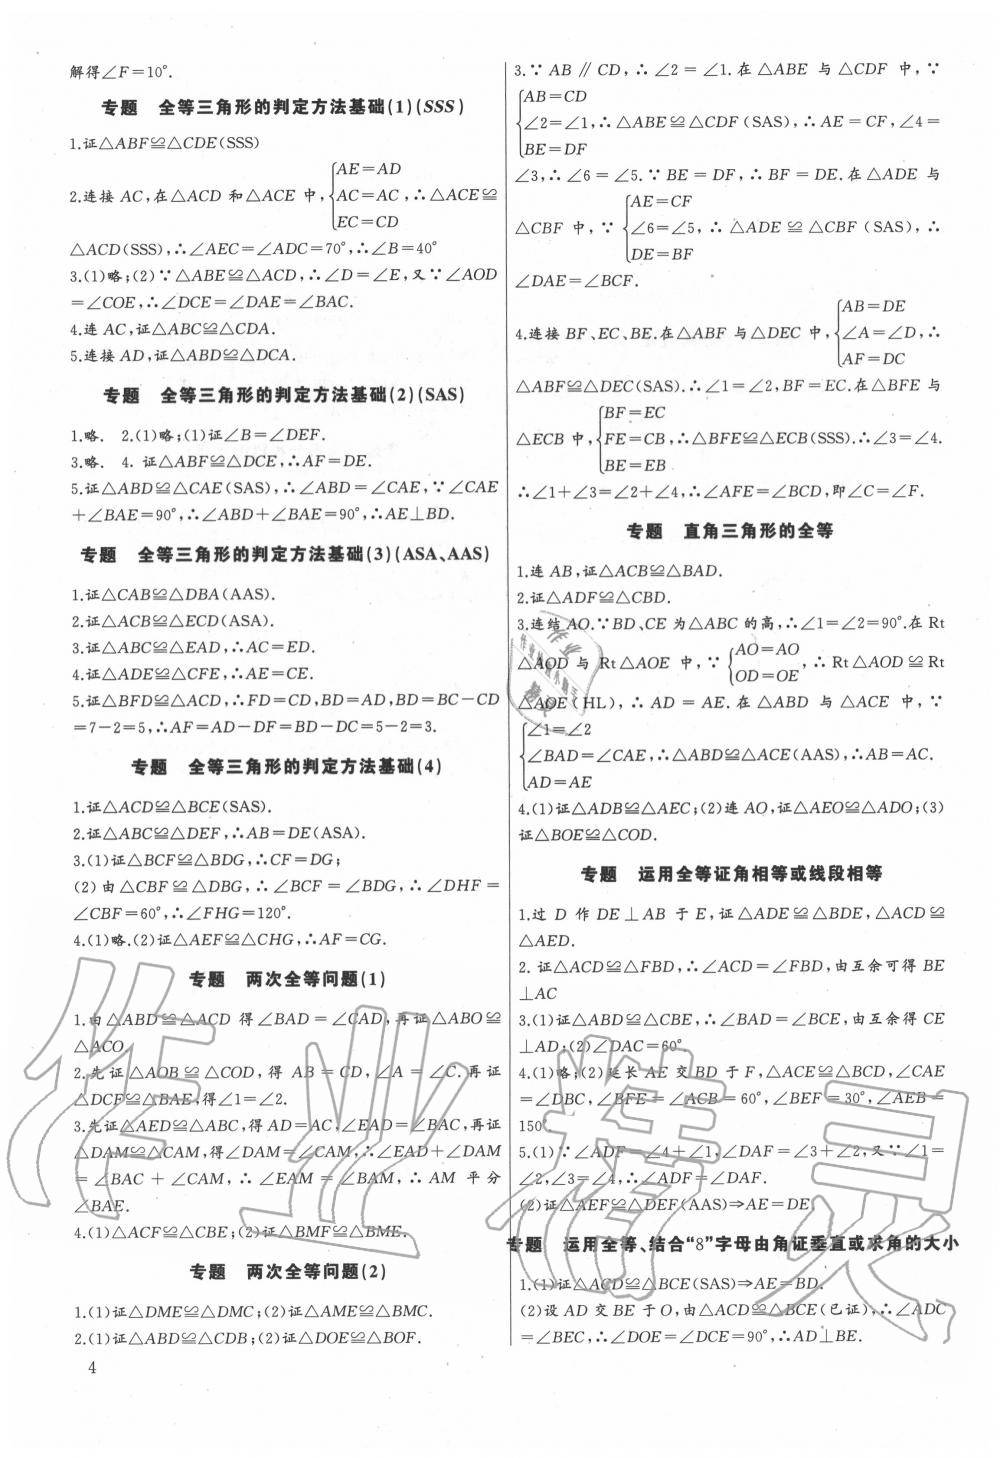 解得∠F=10°.
专题 全等三角形的判定方法基础(1)(SSS)
1.证△ABF≌△CDE(SSS)
2.连接 AC,在△ACD 和△ACE 中,{AE=AD
AC=AC,∴△ACE≌
EC=CD
△ACD(SSS),∴∠AEC=∠ADC=70°,∴∠B=40°
3.(1)略;(2)∵△ABE≌△ACD,∴∠D=∠E,又∵∠AOD
=∠COE,∴∠DCE=∠DAE=∠BAC.
4.连 AC,证△ABC≌△CDA.
5.连接 AD,证△ABD≌△DCA.
专题 全等三角形的判定方法基础(2)(SAS)
1.略. 2.(1)略;(1)证∠B=∠DEF.
3.略. 4. 证△ABF≌△DCE,∴AF=DE.
5.证△ABD≌△CAE(SAS),∴∠ABD=∠CAE,∵∠CAE
+∠BAE=90°,∴∠ABD+∠BAE=90°,∴AE⊥BD.
专题 全等三角形的判定方法基础(3)(ASA、AAS)
1.证△CAB≌△DBA(AAS).
2.证△ACB≌△ECD(ASA).
3.证△ABC≌△EAD,∴AC=ED.
4.证△ADE≌△CFE,∴AE=CE.
5.证△BFD≌△ACD,∴FD=CD,BD=AD,BD=BC-CD
=7-2=5,∴AF=AD-DF=BD-DC=5-2=3.
专题 全等三角形的判定方法基础(4)
1.证△ACD≌△BCE(SAS).
2.证△ABC≌△DEF,∴AB=DE(ASA).
3.(1)证△BCF≌△BDG,∴CF=DG;
(2)由△CBF≌△DBG,∴∠BCF=∠BDG,∴∠DHF=
∠CBF=60°,∴∠FHG=120°.
4.(1)略.(2)证△AEF≌△CHG,∴AF=CG.
专题 两次全等问题(1)
1.由△ABD≌△ACD 得∠BAD=∠CAD,再证△ABO≌
△ACO
2.先证△AOB≌△COD,得 AB=CD,∠A=∠C.再证
△DCF≌△BAE,得∠1=∠2.
3.先证△AED≌△ABC,得 AD=AC,∠EAD=∠BAC,再证
△DAM≌△CAM,得∠DAM=∠CAM,∴∠EAD+∠DAM
=∠BAC+∠CAM,∴∠EAM=∠BAM,∴AM 平分
∠BAE.
4.(1)△ACF≌△CBE;(2)证△BMF≌△BME.
专题 两次全等问题(2)
1.(1)证△DME≌△DMC;(2)证△AME≌△BMC.
2.(1)证△ABD≌△CDB;(2)证△DOE≌△BOF.
4
3.∵AB∥CD,∴∠2=∠1.在△ABE 与△CDF 中,∵
{AB=CD
∠2=∠1,∴△ABE≌△CDF(SAS),∴AE=CF,∠4=
BE=DF
∠3,∴∠6=∠5.∵BE=DF,∴BF=DE.在△ADE 与
△CBF 中,∵{AE=CF
∠6=∠5,∴△ADE≌△CBF(SAS),∴
DE=BF
∠DAE=∠BCF.
4.连接 BF、EC、BE.在△ABF 与△DEC 中,{AB=DE
∠A=∠D,∴
AF=DC
△ABF≌△DEC(SAS).∴∠1=∠2,BF=EC.在△BFE 与
△ECB 中,{BF=EC
FE=CB,∴△BFE≌△ECB(SSS).∴∠3=∠4.
BE=EB
∴∠1+∠3=∠2+∠4,∴∠AFE=∠BCD,即∠C=∠F.
专题 直角三角形的全等
1.连 AB,证△ACB≌△BAD.
2.证△ADF≌△CBD.
3.连结 AO.∵BD、CE 为△ABC 的高,∴∠1=∠2=90°.在 Rt
△AOD 与 Rt△AOE 中,∵{AO=AO
OD=OE,∴Rt△AOD≌Rt
△AOE(HL),∴AD=AE.在△ABD 与△ACE 中,∵
{∠1=∠2
∠BAD=∠CAE,∴△ABD≌△ACE(AAS),∴AB=AC.
AD=AE
4.(1)证△ADB≌△AEC;(2)连 AO,证△AEO≌△ADO;(3)
证△BOE≌△COD.
专题 运用全等证角相等或线段相等
1.过 D 作 DE⊥AB 于 E,证△ADE≌△BDE,△ACD≌
△AED.
2. 证△ACD≌△FBD,∴∠ACD=∠FBD,由互余可得 BE
⊥AC
3.(1)证△ABD≌△CBE,∴∠BAD=∠BCE,由互余得 CE
⊥AD;(2)∠DAC=60°
4.(1)略;(2)延长 AE 交 BD 于 F,△ACE≌△BCD,∠CAE
=∠DBC,∠BFE=∠ACB=60°,∠BEF=30°,∠AEB=
150°.
5.(1)∵∠ADF=∠4+∠1,∠DAF=∠3+∠2,又∵∠1=
∠2,∠3=∠4,∴∠ADF=∠DAF.
(2)证△AEF≌△DEF(AAS)⇒AE=DE
专题 运用全等、结合“8”字母由角证垂直或求角的大小
1.(1)证△ACD≌△BCE(SAS)⇒AE=BD.
(2)设 AD 交 BE 于 O,由△ACD≌△BCE(已证),∴∠ADC
=∠BEC,∴∠DOE=∠DCE=90°,∴AD⊥BE.
作业精灵